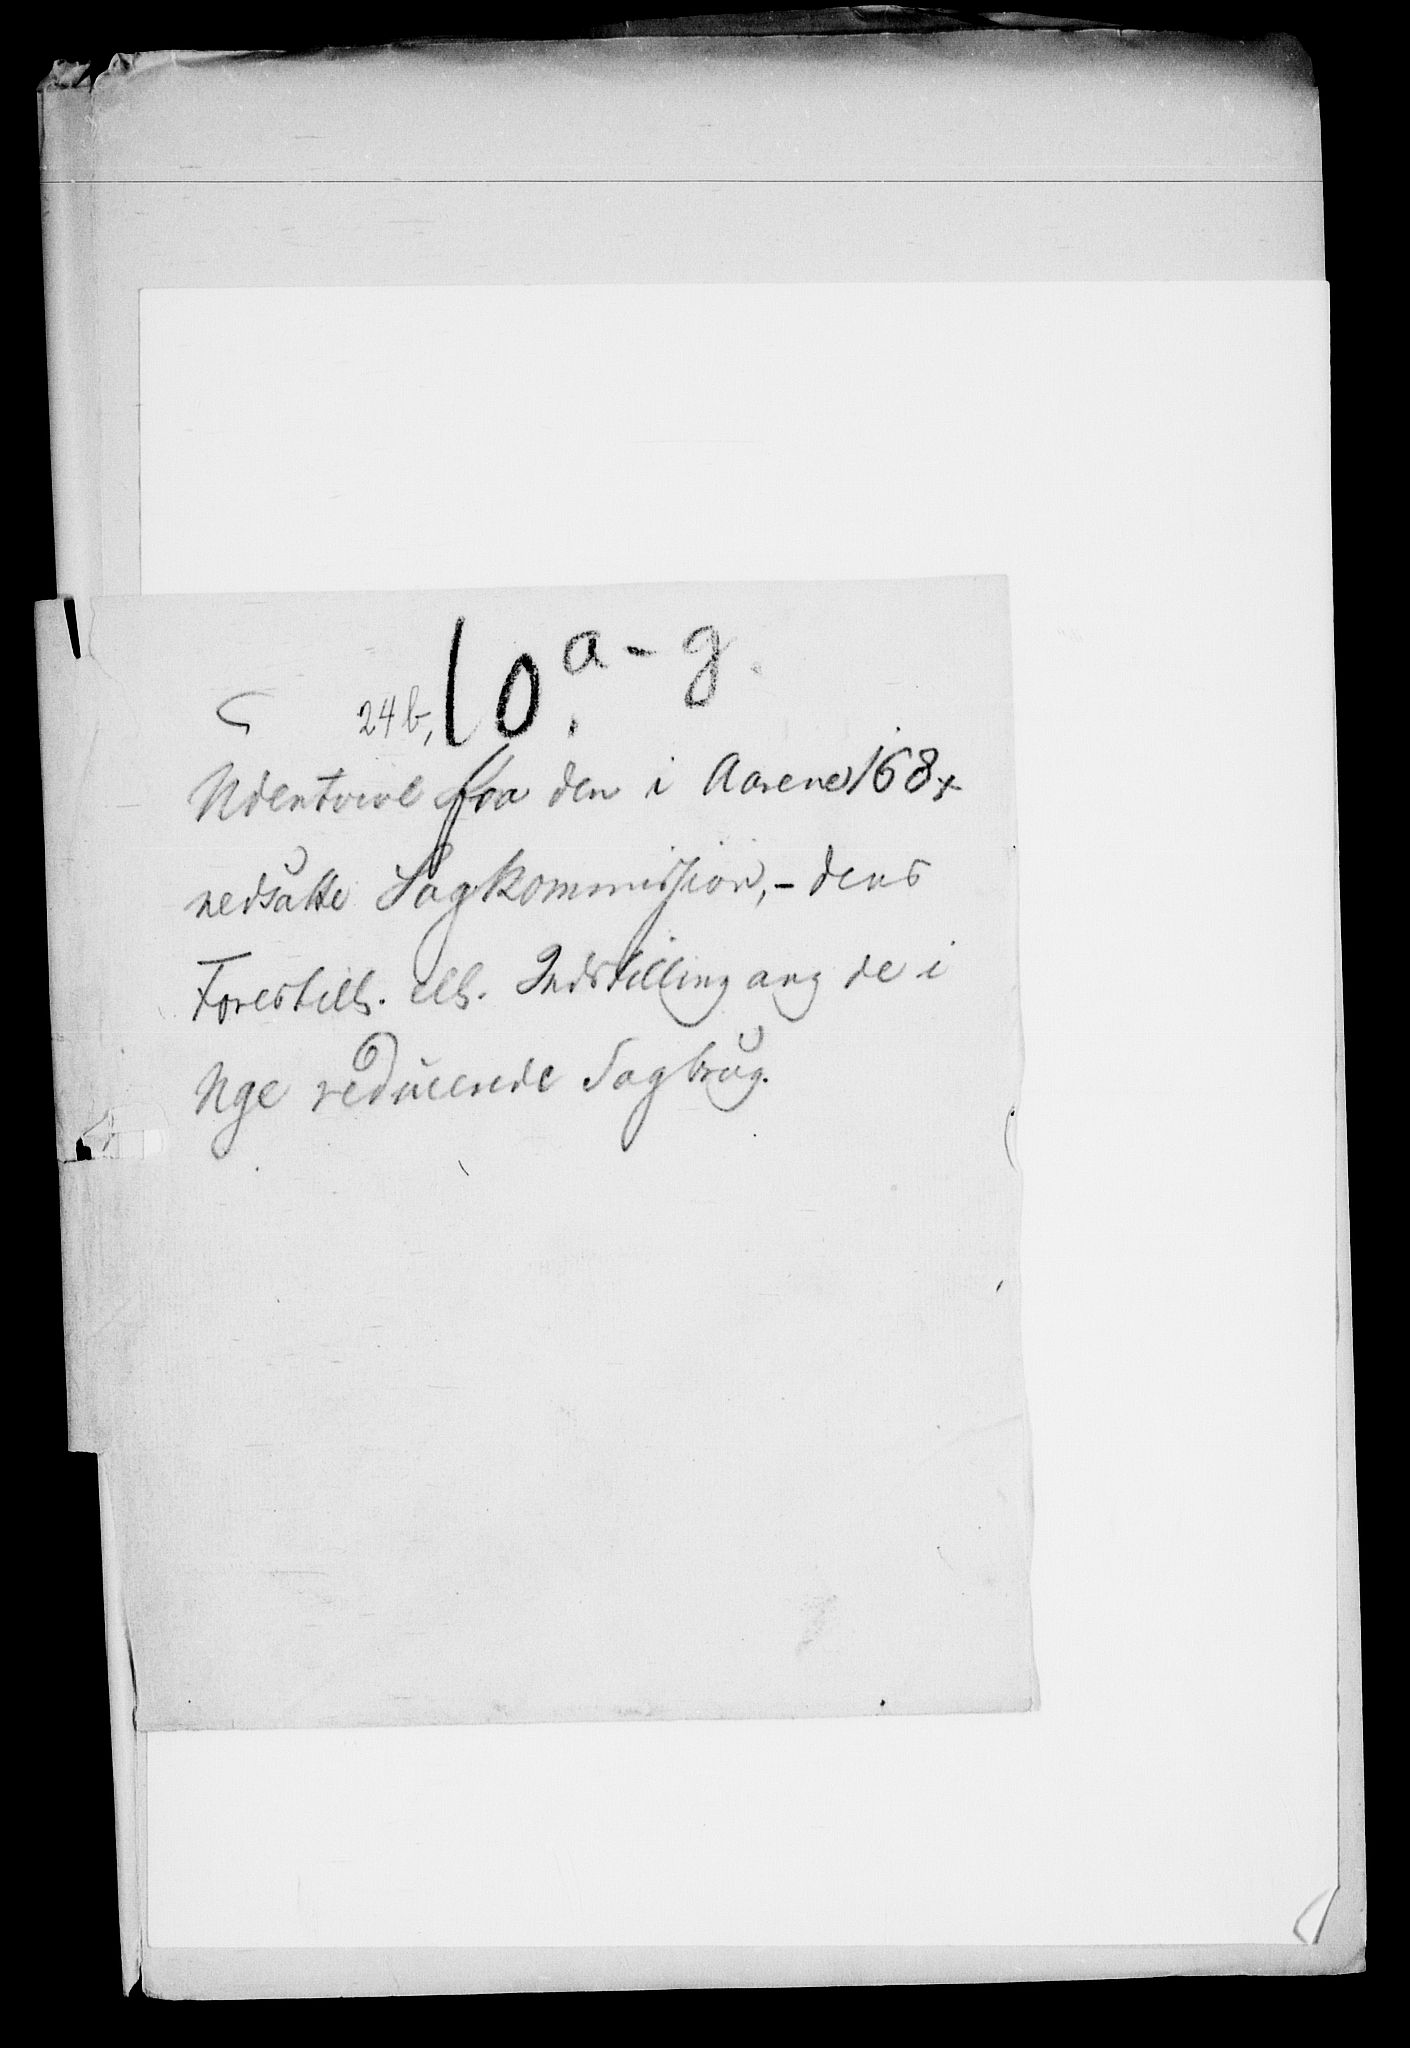 24b, 10.a-g.
Udentvivl fra den i Aarene 168x
nedsatte Sagkommission, - dens
Forestill. ell. Indstilling ang de i
Nge reducerede Sagbrug.